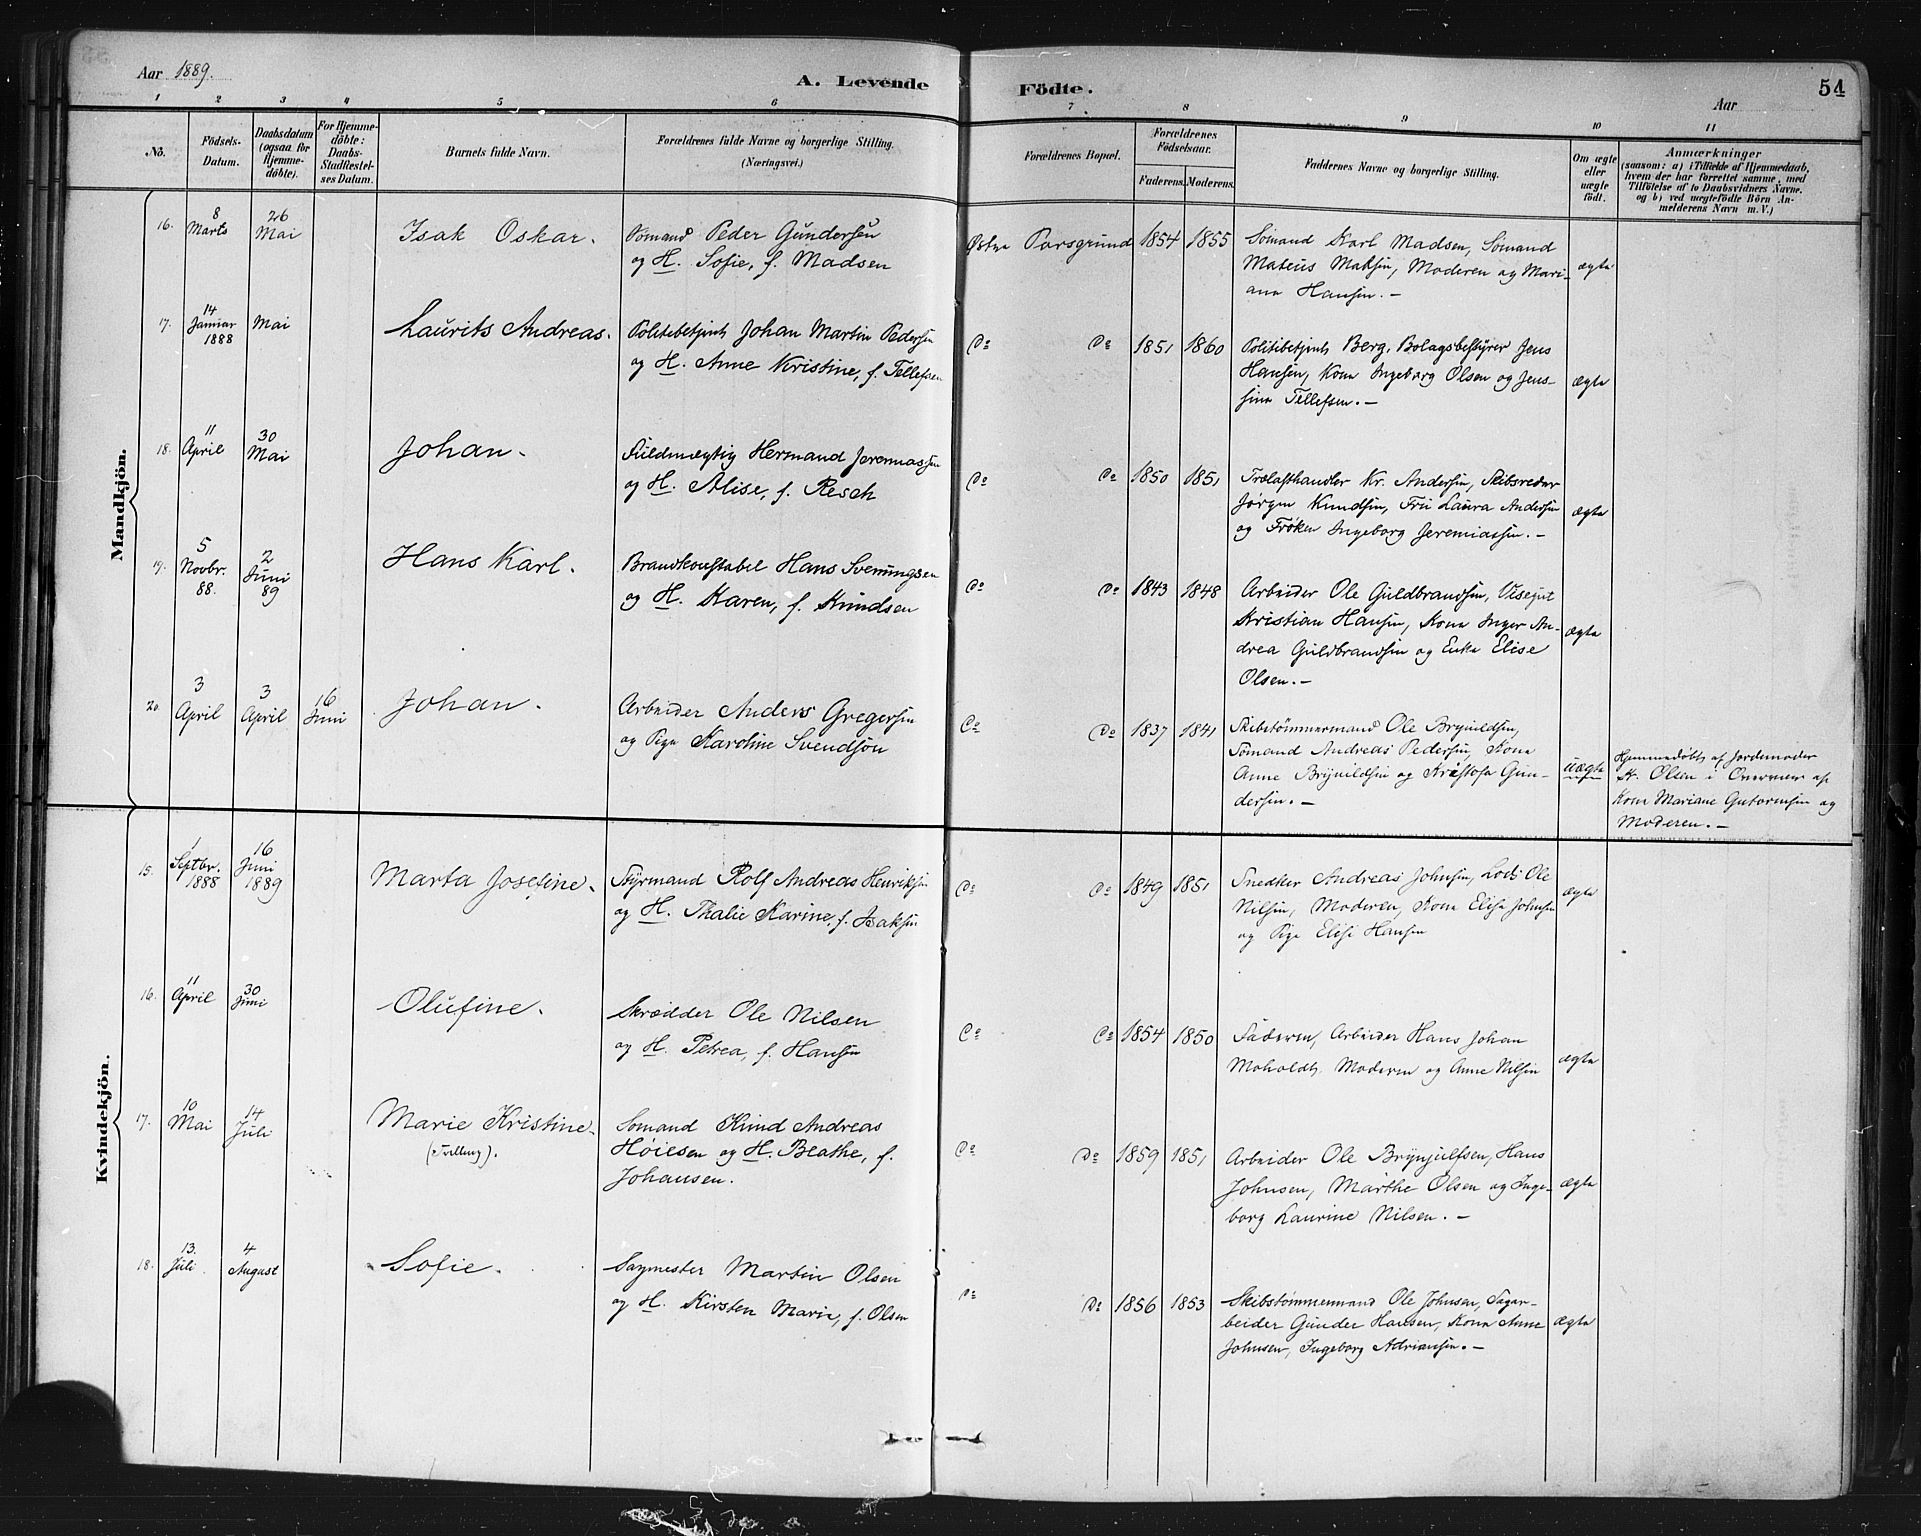 Aar 1889.
A. Levende
Födte.
Aar
54
1 2 3 4 5 6 7 8 9 10 11
No.
Födsels-
Datum.
Daabsdatum
(ogsaa for
Hjemme-
döbte).
For Hjemme-
döbte:
Daabs-
Stadfæstel-
ses Datum.
Barnets fulde Navn.
Forældrenes fulde Navne og borgerlige Stilling.
(Næringsvei.)
Forældrenes Bopæl.
Forældrenes
Födselsaar.
Faderens. Moderens.
Faddernes Navne og borgerlige Stilling.
Om ægte
eller
uægte
födt.
Anmærkninger
(saasom: a) i Tilfælde af Hjemmedaab,
hvem der har forrettet samme, med
Tilföielse af to Daabsvidners Navne.
og b) ved uægtefödte Börn An-
melderens Navn m. V.)
Mandkjön.
16. 8 Marts 26 Mai Isak Oskar. Sømand Peder Gundersen
og H. Sofie, f. Madsen
Østre Porsgrund 1854 1855 Sømand Karl Madsen, Sømand
Mateus Maksin, Moderen og Mari-
ane Hansen. —
ægte
17. 14 Januar 1888 Mai Laurits Andreas. Politibetjent Johan Martin Pedersen
og H. Anne Kristine, f. Tellefsen
Do Do 1851 1860 Politibetjent Berg, Bolagsbestyrer Jens
Hansen, Kone Ingeborg Olsen og Jens-
sine Tellefsen. —
ægte
18. 11 April 30 Mai Johan. Fuldmægtig Hermand Jeremiassen
og H. Alise, f. Resch
Do Do 1850 1851 Trælasthandler Kr. Andersen, Skibsreder
Jørgen Knudsen, Fru Laura Andersen
og Frøken Ingeborg Jeremiassen. —
ægte
19. 5 Novbr. 88. 2 Juni 89 Hans Karl. Brandkonstabel Hans Svenungsen
og H. Karen, f. Knudsen
Do Do 1843 1848 Arbeider Ole Guldbrandsen, Visegut
Kristian Hansen, Kone Inger An-
drea Guldbrandsen og Enke Elise
Olsen. —
ægte
20. 3 April 3 April 16 Juni Johan. Arbeider Anders Gregersen
og Pige Karoline Svendsøn
Do Do 1837 1841 Skibstømmermand Ole Brynildsen,
Sømand Andreas Pedersen, Kone
Anne Brynildsen og Kristofa Gun-
dersen. —
uægte
Hjemmedøbt af Jordemoder
Olsen i Overvær af
Kone Mariane Gutormsen og
Moderen. —
Kvindekjön.
15. 1 Septbr. 1888 16 Juni 1889 Marta Josefine. Styrmand Rolf Andreas Henriksen
og H. Thalie Karine, f. Isaksen
Do Do 1849 1851 Snedker Andreas Johnsen, Lods Ole
Nilsen, Moderen, Kone Elise Johnsen
og Pige Elise Hansen
ægte
16. 11 April 30 Juni Olufine. Skrædder Ole Nilsen
og H. Petrea, f. Hansen
Do Do 1854 1850 Faderen, Arbeider Hans Johan
Moholdt, Moderen og Anne Nilsen
ægte
17. 10 Mai 14 Juli Marie Kristine.
(Tvilling).
Sømand Knud Andreas
Høiesen og H. Beathe, f.
Johansen.
Do Do 1859 1851 Arbeider Ole Brynjulfsen, Hans
Johnsen, Marthe Olsen og Inge-
borg Laurine Nilsen. —
ægte
18. 13. Juli 4 August Sofie. Sagmester Martin Olsen
og H. Kirsten Marie, f. Olsen
Do Do 1856 1853 Skibstømmermand Ole Johnsen, Sagar-
beider Gunder Hansen, Kone Anne
Johnsen, Ingeborg Adriansen. —
ægte